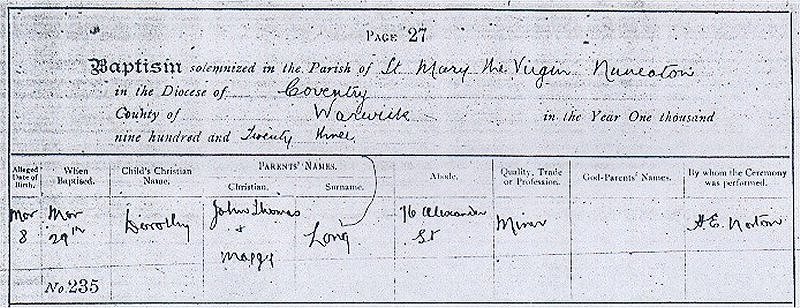 PAGE 27
Baptism solemnized in the Parish of St Mary the Virgin Nuneaton
in the Diocese of Coventry
County of Warwick in the Year One thousand
nine hundred and Twenty three
Alleged Date of Birth.
When Baptised.
Child's Christian Name.
PARENTS' NAMES.
Christian.
Surname.
Abode.
Quality, Trade or Profession.
God-Parents' Names.
By whom the Ceremony was performed.
Mar 8
Mar 29th
Dorothy
John Thomas
+
Maggy
Long
76 Alexander St
Miner
H.E. Norton
No. 235